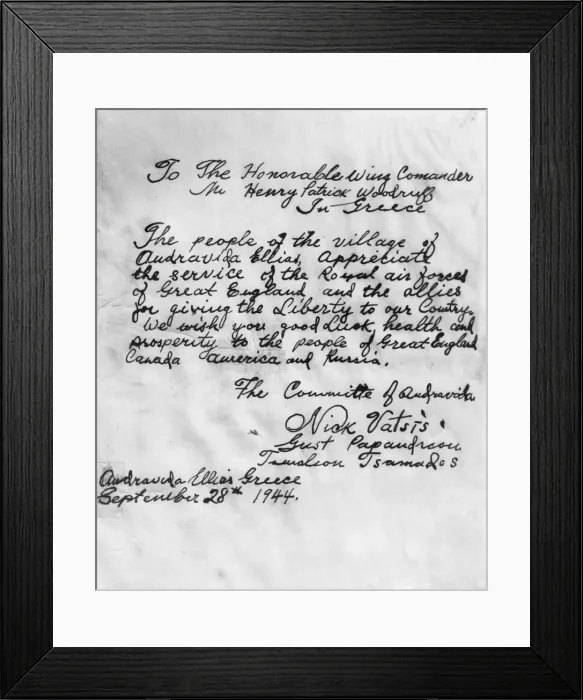 To The Honorable Wing Comander
Mr Henry Patrick Woodruff
In Greece
The people of the village of
Andravida Ellias, Appreciate
the service of the Royal air forces
of Great England and the allies
for giving the Liberty to our Country.
We wish you good Luck, health and
prosperity to the people of Great England
Canada america and Russia.
The Committe of Andravida
Nick Vatsis.
Gust Papandreou
Timoleon Tsamados
Andravida Ellias Greece
September 28th 1944.